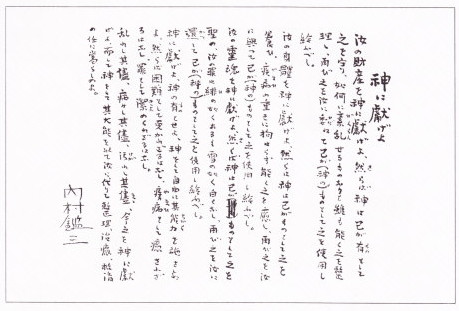 神に献げよ
汝の財産を神に献げよ、然らば神は己が有として
之を守り、如何に紊乱せるものなりと雖も能く之を整
理し、而して之を汝に委ねて己が神のものとして之を使用し
給ふべし。
汝の身体を神に献げよ、然らば神は己がものとして之を
養ひ、疾病の重きに拘はらず能く之を癒し、而して之を汝
に与へて己が神のものとして之を使用し給ふべし。
汝の霊魂を神に献げよ、然らば神は己がものとして之を
聖め、汝の罪は緋の如くなるも雪の如く白くなし、而して之を汝に
還して己が神のものとして之を使用し給ふべし。
神に献げよ、神の有となせよ、神をして自由に其能力を施さしめ
よ、然らば困難として免かれざるはなし、疾病として癒されざ
るはなし、罪として潔められざるはなし。
乱れし其儘、病みし其儘、汚れし其儘、今之を神に献
げよ、而して神をして其大能を以て汝に代りて整理、治癒、救済
の任に当らしめよ。
内村鑑三